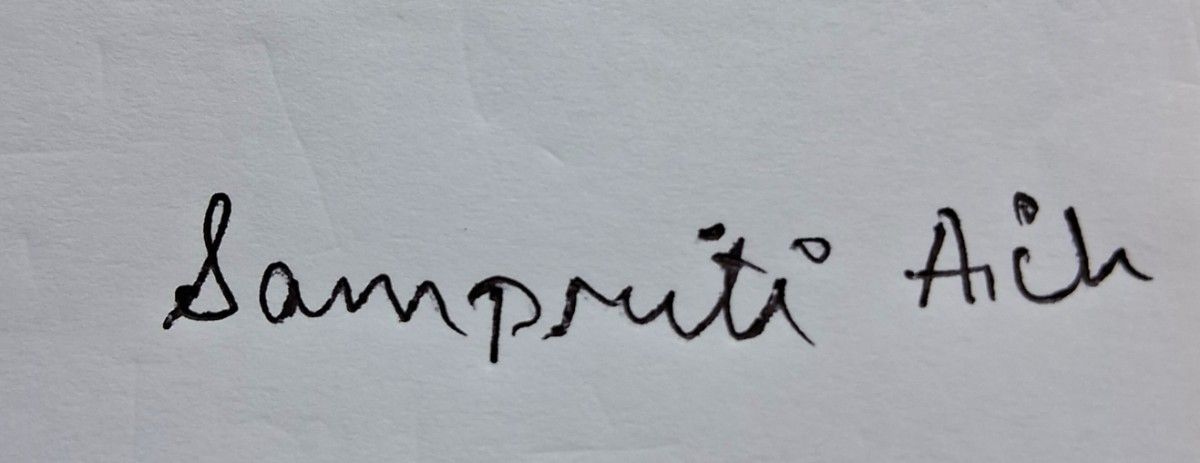 Sampriti Aich